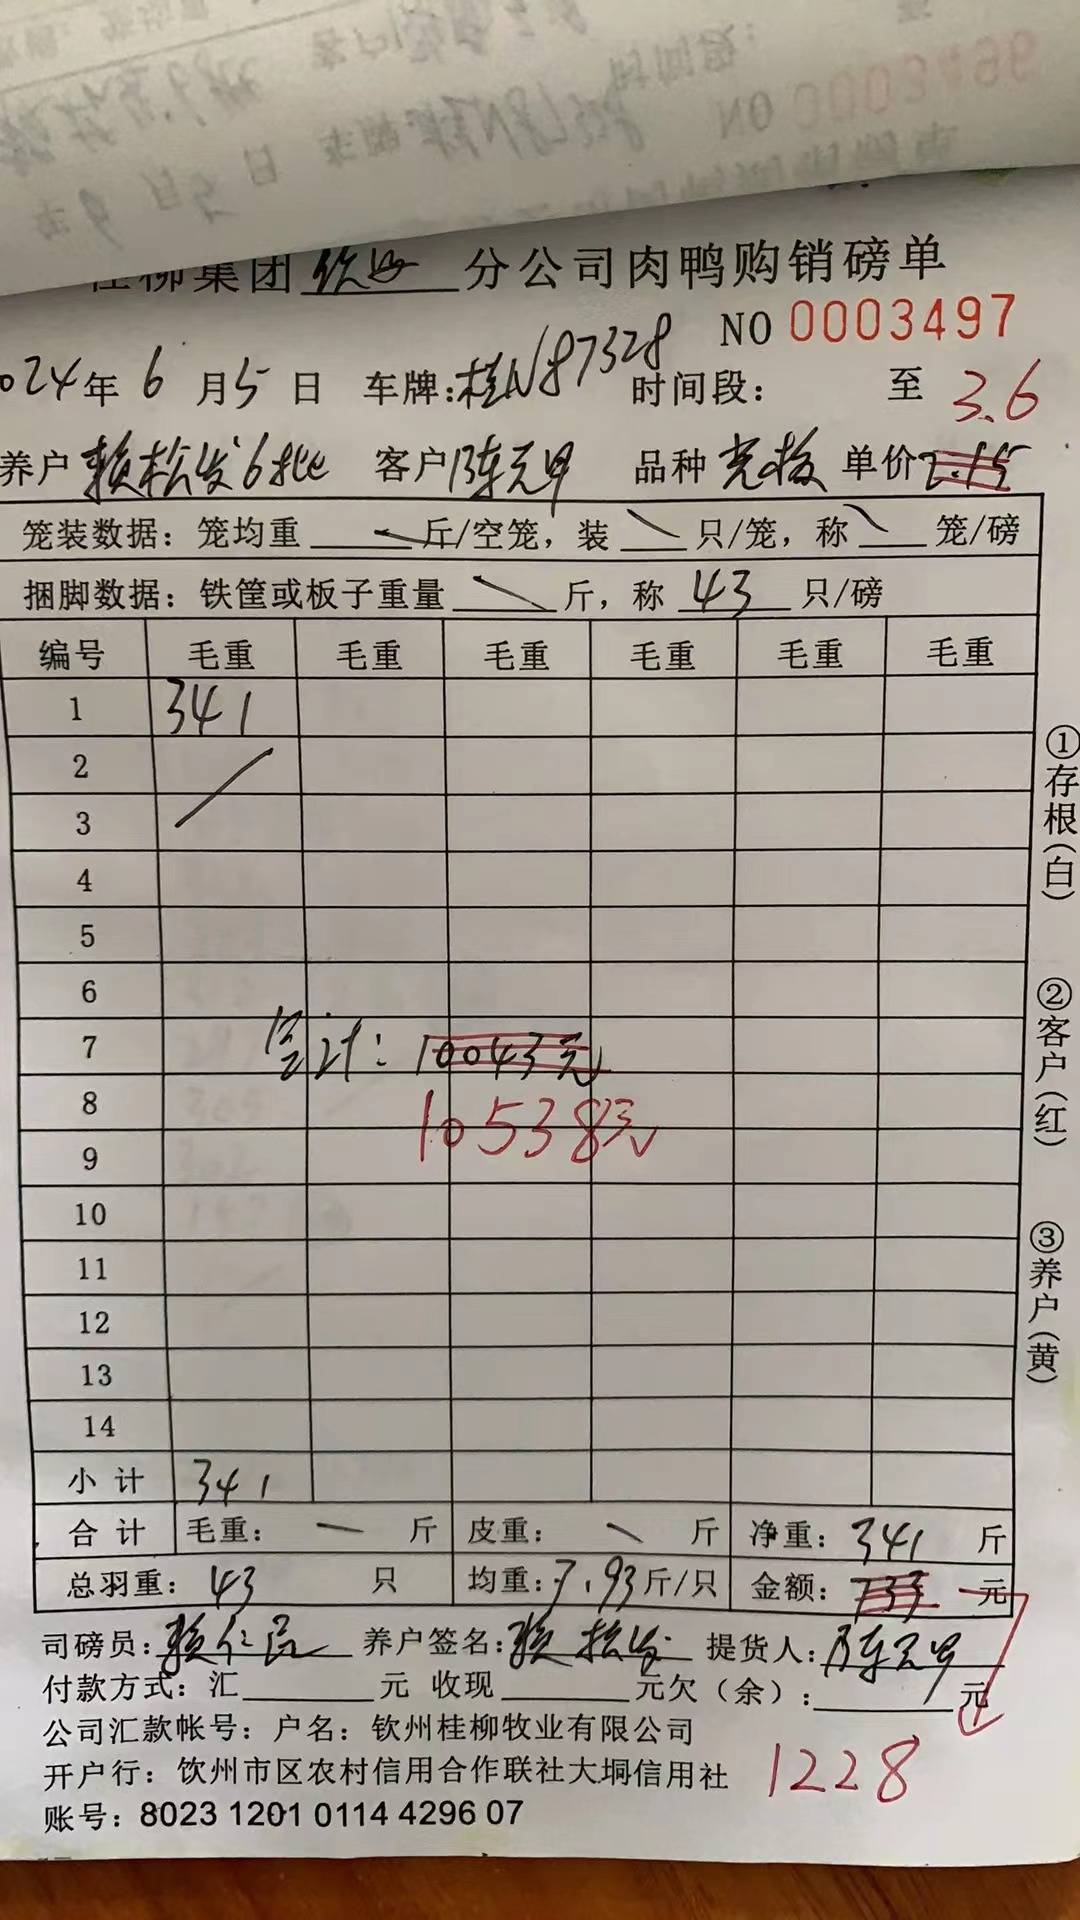 NO 0003496
桂柳集团钦州分公司肉鸭购销磅单
NO 0003497
2024年6月5日 车牌:桂N87328 时间段: 至
3.6
养户 赖松发6批 客户 陈元甲 品种 单价 2.15
笼装数据: 笼均重 斤/空笼, 装 只/笼, 称 笼/磅
捆脚数据: 铁筐或板子重量 斤, 称 43 只/磅
编号 毛重 毛重 毛重 毛重 毛重 毛重
1 341
2
3
4
5
6
7 总计: 10043元
8 10538元
9
10
11
12
13
14
小计 341
合计 毛重: — 斤 皮重: 斤 净重: 341 斤
总羽重: 43 只 均重: 7.93斤/只 金额: 733 元
司磅员: 赖仁品 养户签名: 赖松发 提货人: 陈元甲
付款方式: 汇 元 收现 元欠(余): 元
1228
公司汇款帐号: 户名: 钦州桂柳牧业有限公司
开户行: 钦州市区农村信用合作联社大垌信用社
账号: 8023 1201 0114 4296 07
①存根(白)
②客户(红)
③养户(黄)